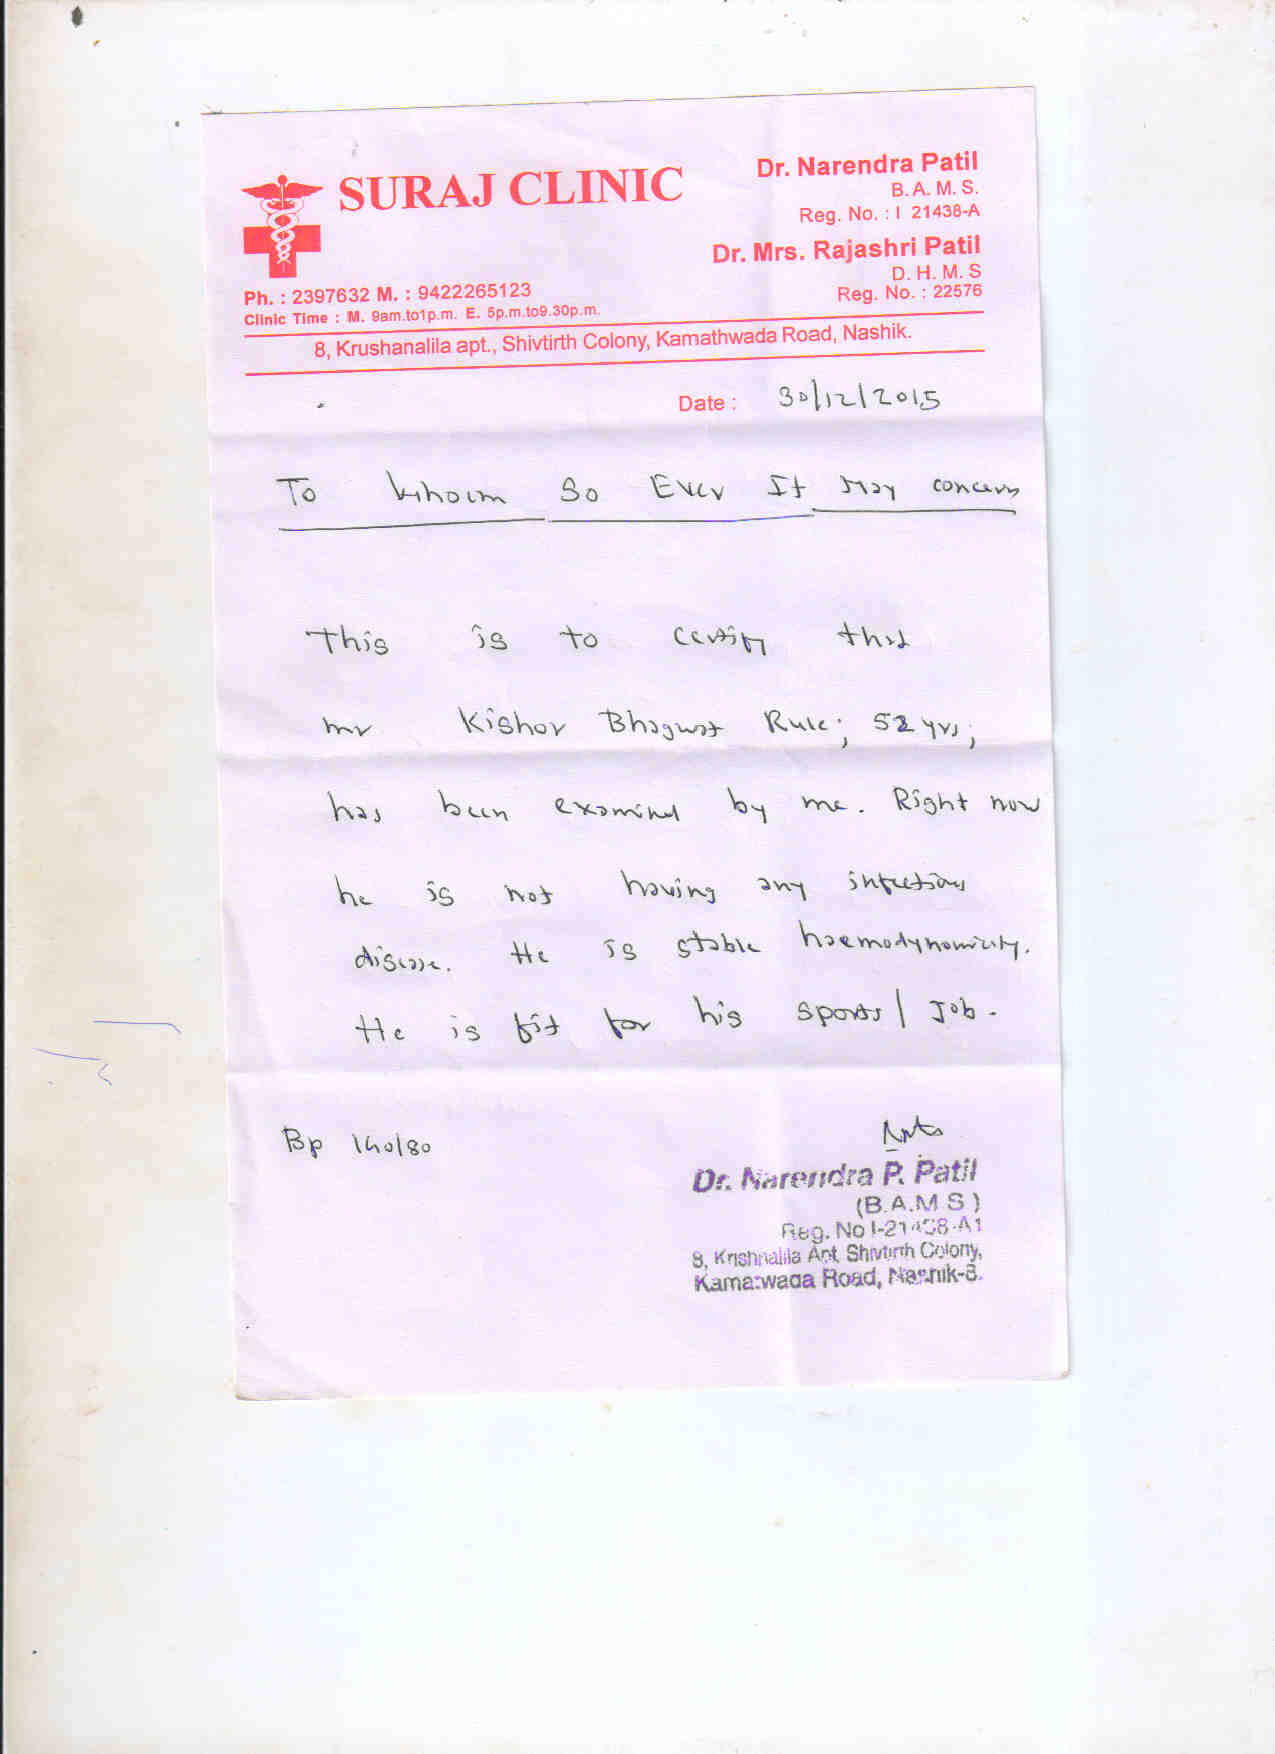 SURAJ CLINIC
Dr. Narendra Patil
B.A.M.S.
Reg. No. : I 21438-A
Dr. Mrs. Rajashri Patil
D.H.M.S
Reg. No. : 22576
Ph. : 2397632 M. : 9422265123
Clinic Time : M. 9am.to1p.m. E. 5p.m.to9.30p.m.
8, Krushanalila apt., Shivtirth Colony, Kamathwada Road, Nashik.
Date : 30/12/2015
To Whom So Ever It May concern
This is to certify that
mr Kishor Bhagwat Rule; 52 yrs;
has been examined by me. Right now
he is not having any infectious
disease. He is stable haemodynamically.
He is fit for his sports/ Job.
Bp 140/80
Dr. Narendra P. Patil
(B.A.M.S)
Reg. No I-21438-A1
8, Krishnalila Apt. Shivtirth Colony,
Kamatwada Road, Nashik-8.